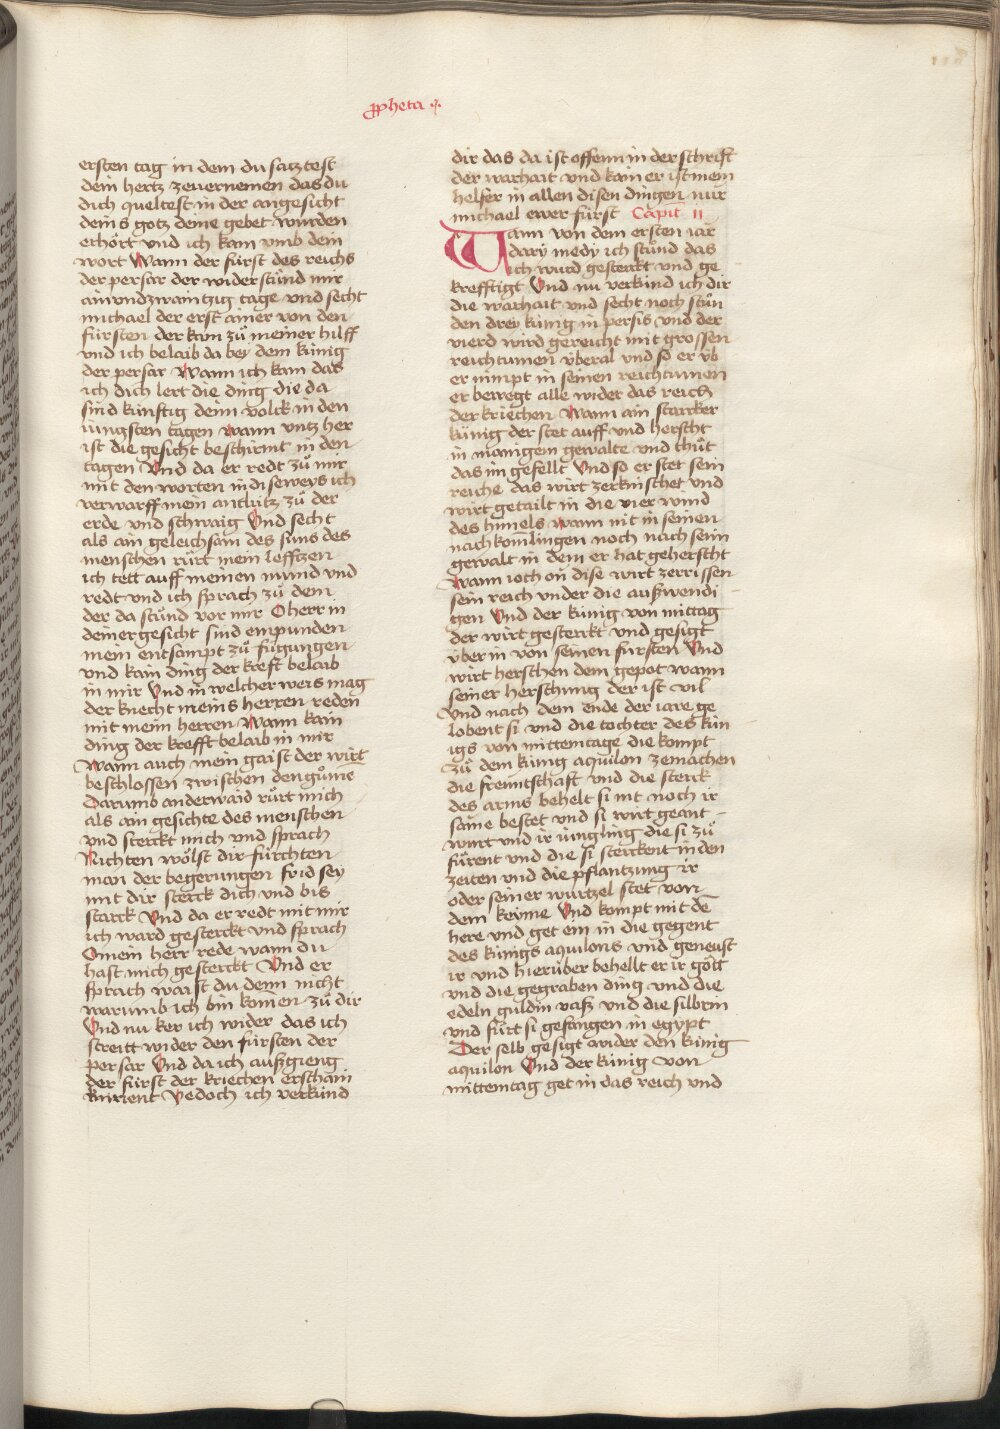 ꝓpheta
ersten tag in dem du satztest
dein hertz zeuernemen das du
dich queltest in der angesicht
deins gotz deine gebet wurden
erhört vnd ich kam vmb dein
wort Wann der fürst des reichs
der persar der widerstůnd mir
ainvndzwaintzig tage vnd secht
michael der erst ainer von den
fürsten der kam zů meiner hilff
vnd ich belaib da bey dem künig
der persar Wann ich kam das
ich dich lert die ding die da
sind künftig deim volck in den
iungsten tagen wann vntz her
ist die gesicht beschirmt in den
tagen Vnd da er redt zů mir
mit den worten in diseweys ich
verwarff mein antlütz zů der
erde vnd schwaig Vnd secht
als ain geleichsam des suns des
menschen růrt mein leffczen
ich tett auff meinen mund vnd
redt vnd ich sprach zů dem
der da stůnd vor mir O herr in
deiner gesicht sind empunden
mein entsampt zů fügungen
vnd kain ding der kreft belaib
in mir Vnd in welcher weis mag
der knecht meins herren reden
mit meim herren Wann kain
ding der krefft belaib in mir
Wann auch mein gaist der wirt
beschlossen zwischen den gůme
Darumb anderwaid růrt mich
als ain gesichte des menschen
vnd sterckt mich vnd sprach
Nichten wölst dir fürchten
man der begerungen frid sey
mit dir sterck dich vnd bis
starck Vnd da er redt mit mir
ich ward gesterckt vnd sprach
O mein herr rede wann du
hast mich gesterckt Vnd er
sprach waist du denn nicht
warumb ich bin komen zů dir
Vnd nu ker ich wider das ich
streitt wider den fürsten der
persar Vnd da ich außgieng
der fürst der kriechen erschain
kument Yedoch ich verkünd
dir das da ist offenn in der schrift
der warhait vnd kain er ist mein
helfer in allen disen dingen nur
michael ewer fürst Capit 11
Wann von dem ersten iar
dary medy ich stůnd das
ich wurd gesterckt vnd ge
krefftigt Vnd nu verkünd ich dir
die warhait vnd secht noch stůn
den drey künig in persis vnd der
vierd wird gereicht mit grossen
reichtumen v̈beral vnd so er v̈b
er nimpt in seinen reichtumen
er bewegt alle wider das reich
der kriechen Wann ain starcker
künig der stet auff vnd herscht
in manigem gewalte vnd thůt
das im gefellt Vnd so er stet sein
reiche das wirt zerknischet vnd
wirt getailt in die vier wind
des himels wann nit in seinen
nachkomlingen noch nach seim
gewalt in dem er hat geherscht
Wann ioch on dise wirt zerrissen
sein reich vnder die außwendi
gen Vnd der künig von mittag
der wirt gesterckt vnd gesigt
v̈ber in von seinen fürsten Vnd
wirt herschen dem gepot wann
seiner herschung der ist vil
Vnd nach dem ende der iare ge
lobent si vnd die tochter des kün
igs von mittemtage die kompt
zů dem künig aquilon zemachen
die freuntschaft vnd die sterck
des arms behelt si nit noch ir
same bestet vnd si wirt geant
wurt vnd ir iüngling die si zů
fůrent vnd die si sterckent in den
zeiten vnd die pflantzung ir
oder seiner wurtzel stet von
dem keyme Vnd kompt mit dē
here vnd get ein in die gegent
des künigs aquilons vnd geneust
ir vnd hierüber behellt er ir gött
vnd die gegraben ding vnd die
edeln guldin vaß vnd die silbrin
vnd fůrt si gefangen in egypt
Der selb gesigt wider den künig
aquilon Vnd der künig von
mittemtag get in das reich vnd